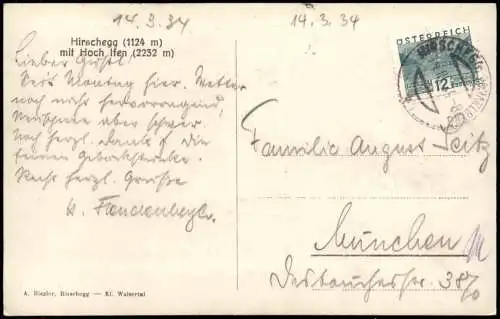 14.3.34
14.3.34
Hirschegg (1124 m)
mit Hoch Ifen (2232 m)
Lieber Gustl.
Seit Montag hier. Wetter
noch sehr hervorragend,
aber schwer.
Noch herzl. Dank f. die
feinen
Recht herzl. Grüße
ÖSTERREICH
12
HIRSCHEGG
Familie August Seitz
München
Destouchesstr. 38/0
A. Riezler, Hirschegg — Kl. Walsertal